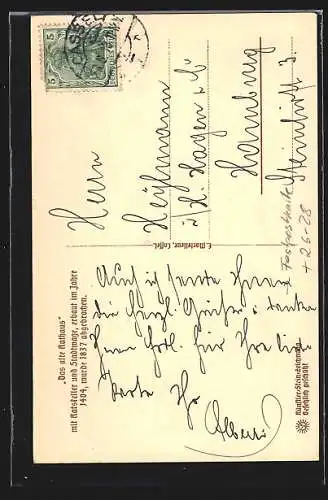 CASSEL
5 5
Herrn
Heylmann
i/H. Hagen & Co
Hamburg
Steinhöft 3.
+26-28
C. Cassel.
„Das alte Rathaus"
mit Ratskeller und Stadtwage, erbaut im Jahre
1404, wurde 1837 abgebrochen.
Auch ich sende Ihnen
die herzl. Grüsse u. danke
Ihnen für Ihre liebe
Karte Ihr
Albert
Künstler-Steinzeichnung
Gesetzlich geschützt